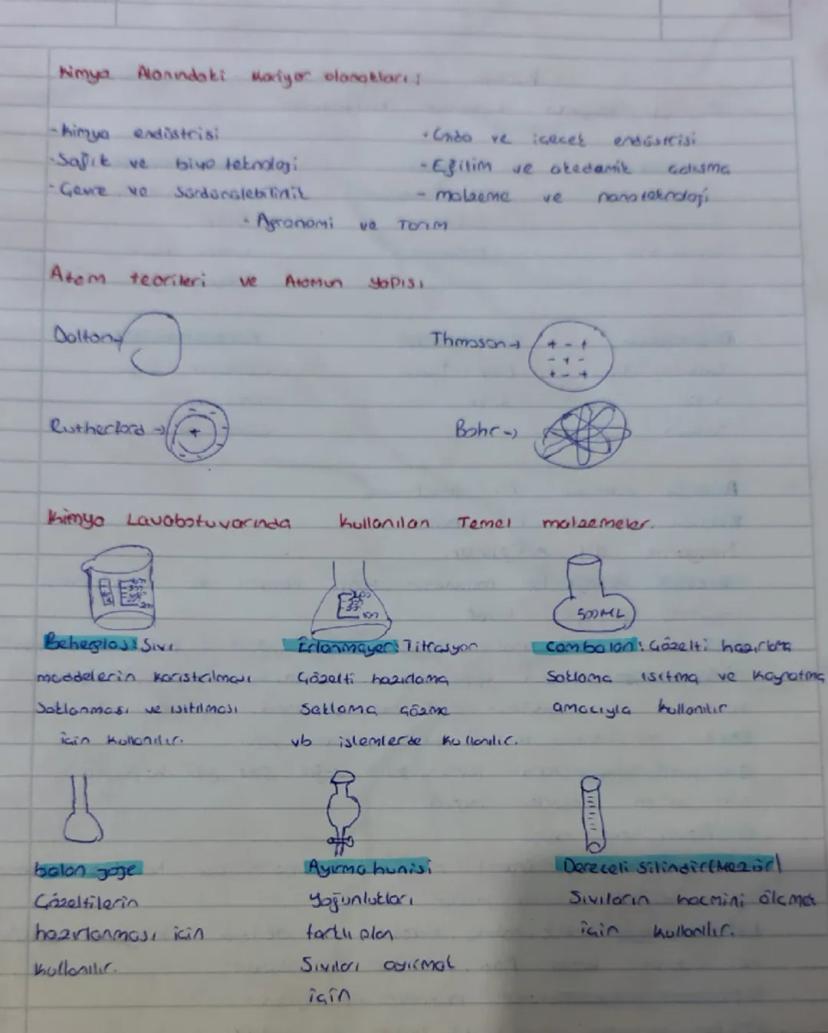 Kimya Alanındaki Kariyer olanakları:
-Kimya endüstrisi
- Gıda ve içecek endüstrisi
-Sağlık ve biyo teknoloji
- Eğitim ve akedamik çalışma
- Çevre ve Sürdürülebilirlik
- malzeme ve nanoteknoloji
- Agronomi ve Tarım
Atom teorileri ve Atomun yapısı
Dalton→
Thmoson→
+ - +
- + -
+ - +
Rutherford →
+
Bohr→
Kimya Lavabotuvarında kullanılan Temel malzemeler.
500ML
Beherglas: Sıvı
maddelerin karıştırılması
Saklanması ve ısıtılması
için kullanılır.
Erlanmayer: Titrasyon
Çözelti hazırlama
saklama çözme
vb işlemlerde kullanılır.
cam balon: Çözelti hazırlama
Saklama ısıtma ve kaynatma
amacıyla kullanılır
balon joje
Çözeltilerin
hazırlanması için
kullanılır.
Ayırma hunisi
Yoğunlukları
farklı olan
Sıvıları ayırmak
için
Dereceli Silindir(Mezür)
Sıvıların hacmini ölçmek
için kullanılır.